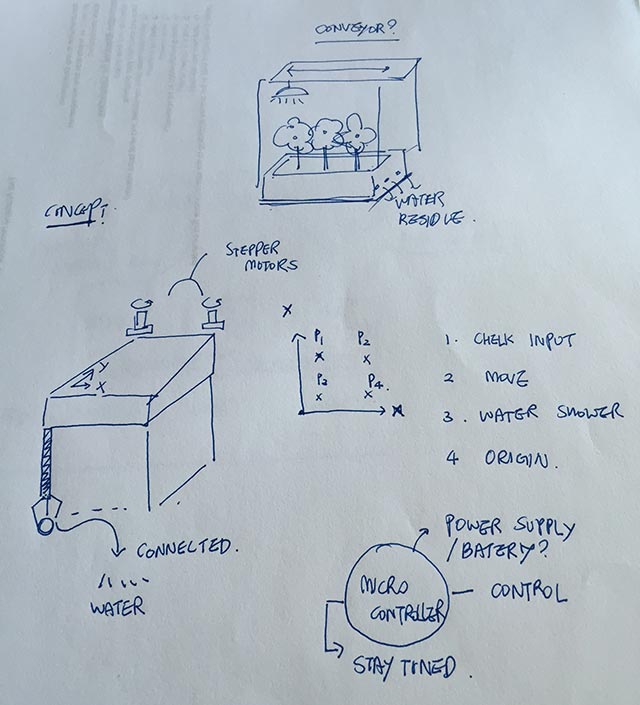 CONVEYOR?
WATER
RESIDUE.
CONCEPT.
STEPPER
MOTORS
Y
X
X
P1
P2
P3
P4.
X
1. CHECK INPUT
2 MOVE
3. WATER SHOWER
4 ORIGIN.
CONNECTED.
WATER
POWER SUPPLY
/BATERY?
MICRO
CONTROLLER
CONTROL
STAY TUNED.